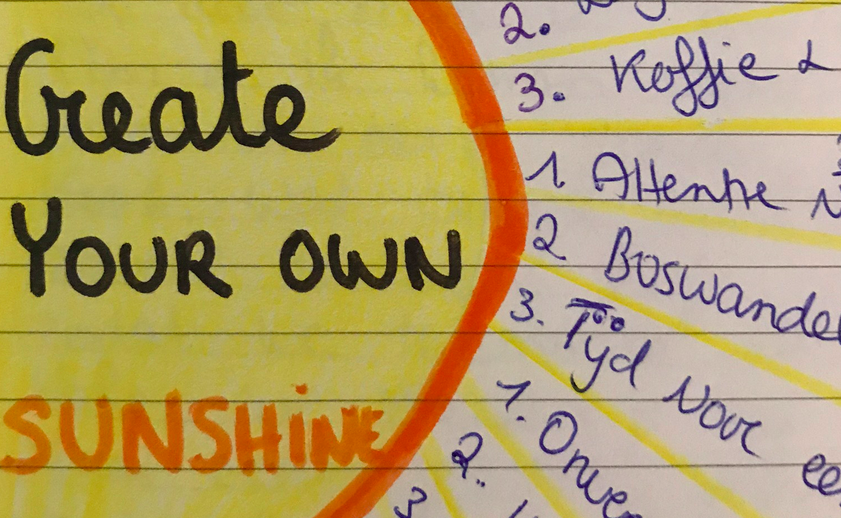 Create
YOUR OWN
SUNSHiNE
2.
3. Koffie &
1. Attentie
2 Boswandel
3. Tijd voor
1. Onver
2.
3